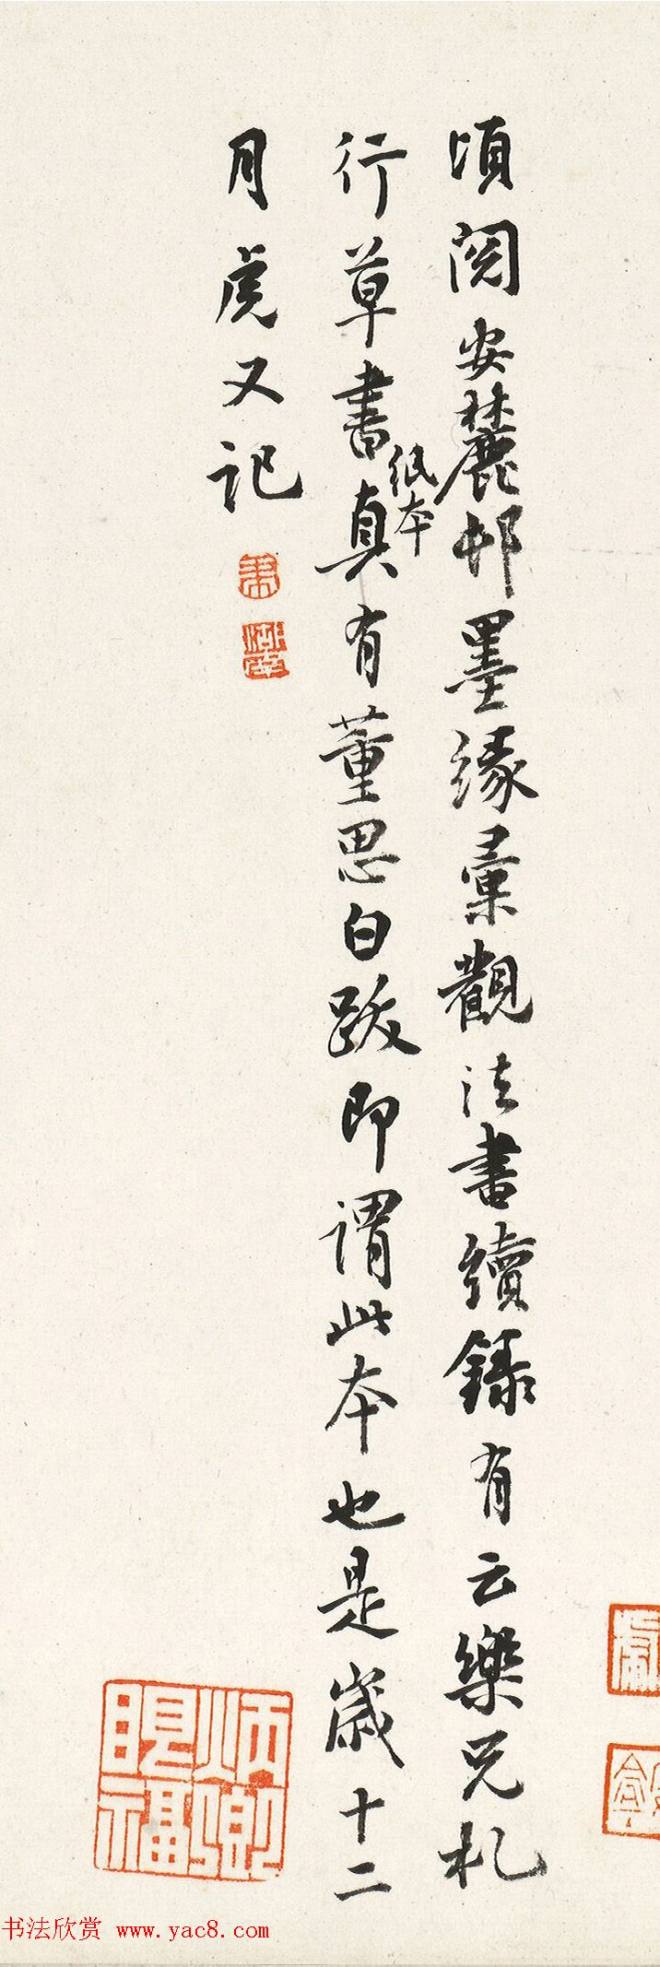 頃閱安麓邨墨緣彙觀法書續錄有云樂兄札
行草書紙本真有董思白跋即謂此本也是歲十二
月虎又記
炳卿眼福
书法欣赏 www.yac8.com